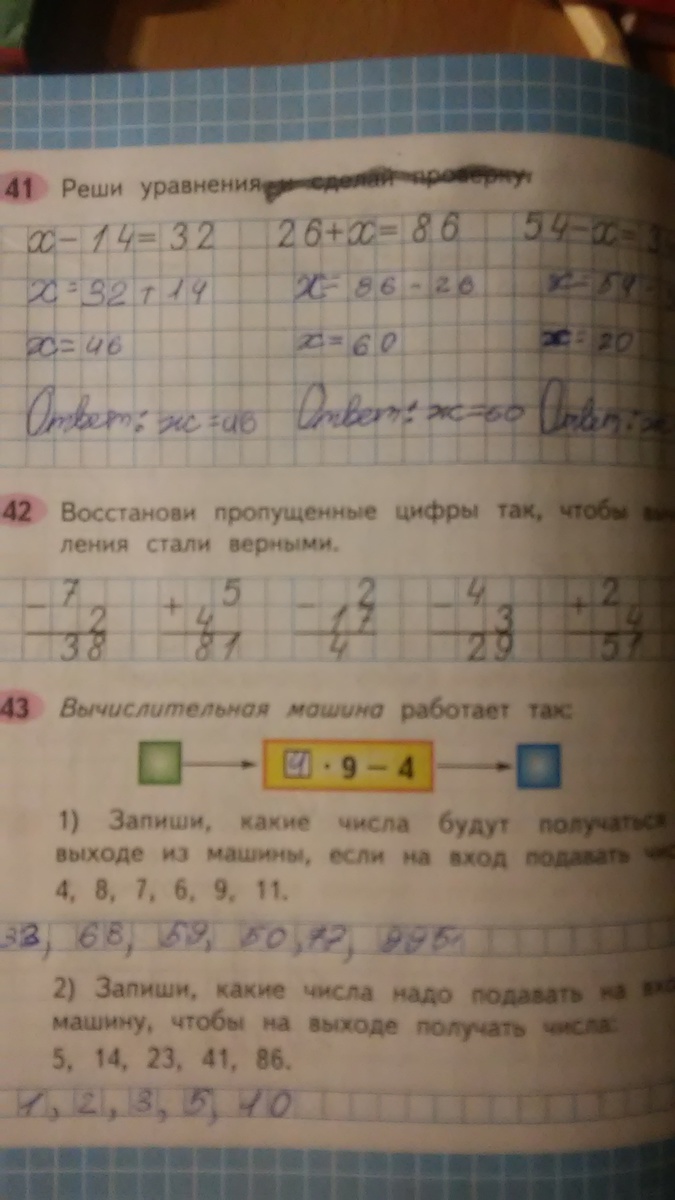 41 Реши уравнения и сделай проверку.
x − 14 = 32 26 + x = 86 54 − x = 3
x = 32 + 14 x = 86 − 26 x = 54 −
x = 46 x = 60 x = 20
Ответ: x = 46 Ответ: x = 60 Ответ: x
42 Восстанови пропущенные цифры так, чтобы
ления стали верными.
− 7 + 5 − 2 − 4 + 2
2 4 17 3 4
38 81 4 29 51
43 Вычислительная машина работает так:
4 · 9 − 4
1) Запиши, какие числа будут получаться
выходе из машины, если на вход подавать чис
4, 8, 7, 6, 9, 11.
68, 59, 50, 77,
2) Запиши, какие числа надо подавать на вхо
машину, чтобы на выходе получать числа:
5, 14, 23, 41, 86.
1, 2, 3, 5, 10